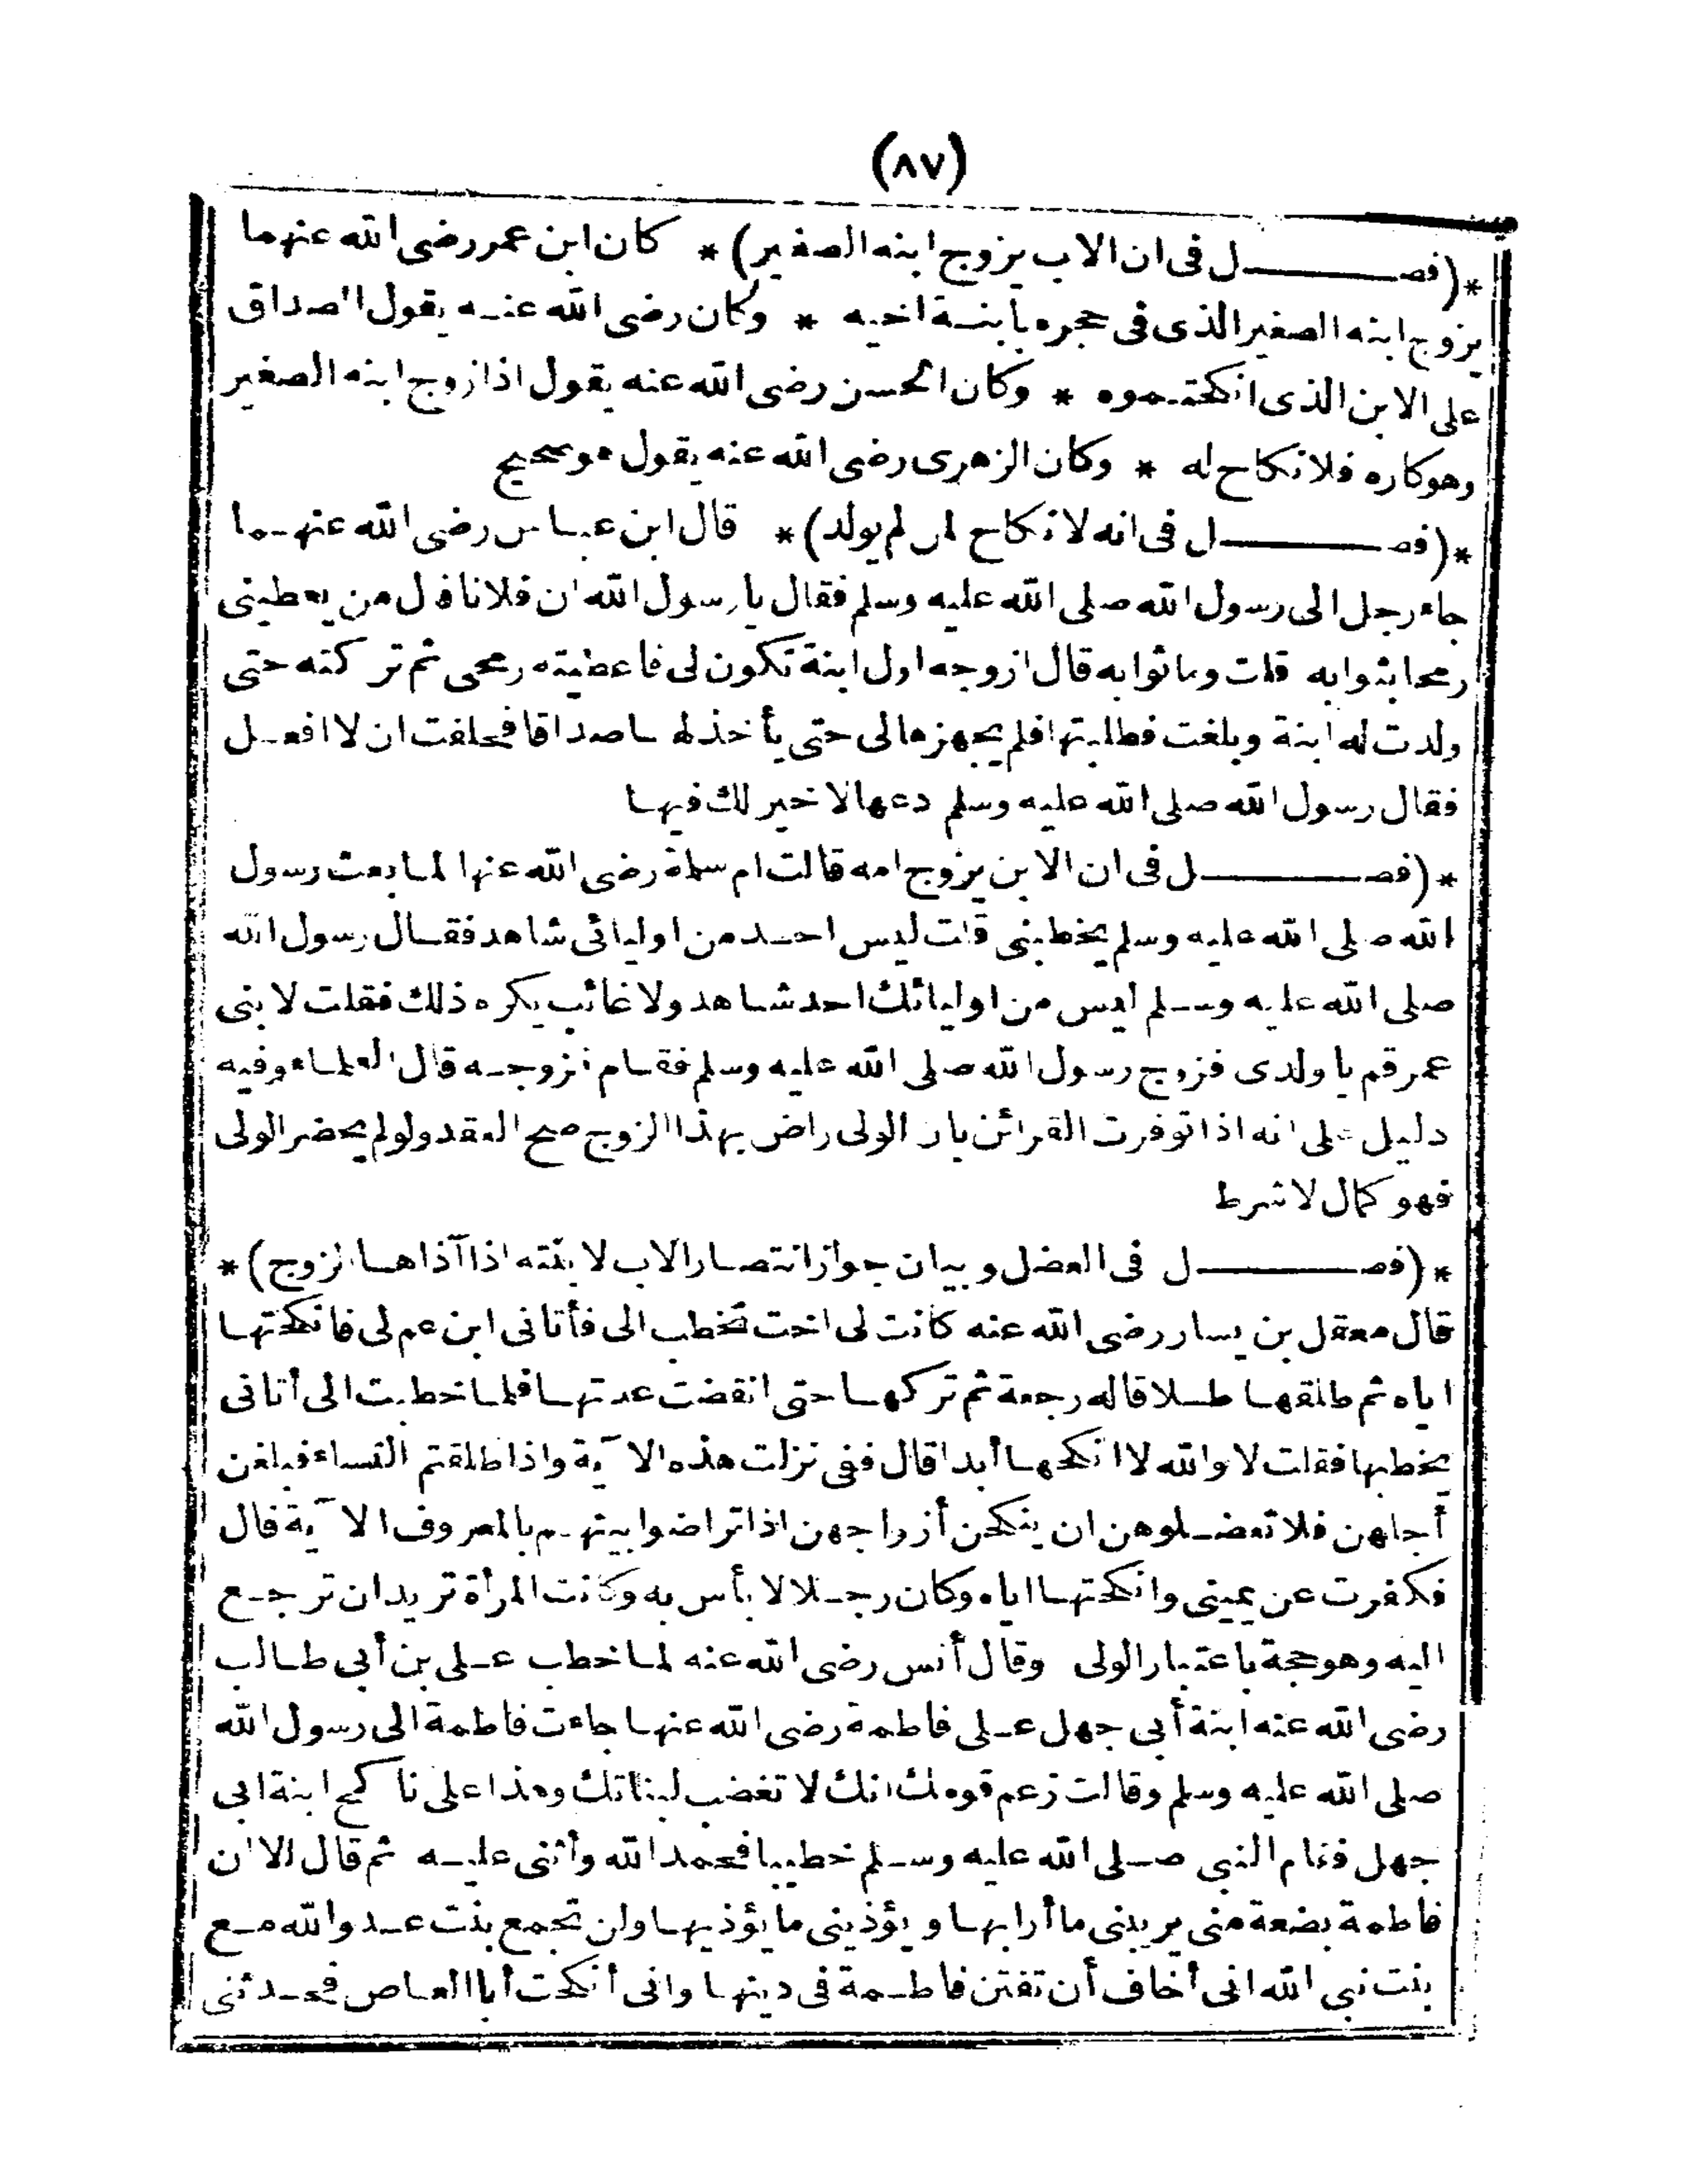 (٨٧)
*(فصــل فى ان الاب يزوج ابنه الصغير)* كان ابن عمر رضى الله عنهما
يزوج ابنه الصغير الذى فى حجره بأبنة اخيه * وكان رضى الله عنه يقول الصداق
على الابن الذى انكحتموه * وكان الحسن رضى الله عنه يقول اذا زوج ابنه الصغير
وهو كاره فلا نكاح له * وكان الزهرى رضى الله عنه يقول هو صحيح
*(فصــل فى انه لا نكاح لمن لم يولد)* قال ابن عباس رضى الله عنهما
جاء رجل الى رسول الله صلى الله عليه وسلم فقال يا رسول الله ان فلانا قال من يعطينى
رمحا بثوابه قلت وما ثوابه قال ازوجه اول ابنة تكون لى فاعطيته رمحى ثم تركته حتى
ولدت له ابنة وبلغت فطلبتها فلم يجهزها لى حتى يأخذ لها صداقا فحلفت ان لا افعل
فقال رسول الله صلى الله عليه وسلم دعها لا خير لك فيها
*(فصــل فى ان الابن يزوج امه قالت ام سلمة رضى الله عنها لما بعث رسول
الله صلى الله عليه وسلم يخطبنى قلت ليس احد من اوليائى شاهد فقال رسول الله
صلى الله عليه وسلم ليس من اوليائك احد شاهد ولا غائب يكره ذلك فقلت لابنى
عمر قم يا ولدى فزوج رسول الله صلى الله عليه وسلم فقام فزوجه قال العلماء وفيه
دليل على انه اذا توفرت القرائن بان الولى راض بهذا الزوج صح العقد ولو لم يحضر الولى
فهو كمال لا شرط
*(فصــل فى العضل وبيان جواز انتصار الاب لابنته اذا آذاها الزوج)*
قال معقل بن يسار رضى الله عنه كانت لى اخت تخطب الى فأتانى ابن عم لى فانكحتها
اياه ثم طلقها طلاقا له رجعة ثم تركها حتى انقضت عدتها فلما خطبت الى أتانى
يخطبها فقلت لا والله لا انكحها أبدا قال ففى نزلت هذه الآية واذا طلقتم النساء فبلغن
أجلهن فلا تعضلوهن ان ينكحن أزواجهن اذا تراضوا بينهم بالمعروف الآية قال
فكفرت عن يمينى وانكحتها اياه وكان رجلا لا بأس به وكانت المرأة تريد ان ترجع
اليه وهو حجة باعتبار الولى وقال أنس رضى الله عنه لما خطب على بن أبى طالب
رضى الله عنه ابنة أبى جهل على فاطمة رضى الله عنها جاءت فاطمة الى رسول الله
صلى الله عليه وسلم وقالت زعم قومك انك لا تغضب لبناتك وهذا على ناكح ابنة ابى
جهل فقام النبى صلى الله عليه وسلم خطيبا فحمد الله وأثنى عليه ثم قال الا ان
فاطمة بضعة منى يريبنى ما أرابها ويؤذينى ما يؤذيها ولن تجمع بنت عدو الله مع
بنت نبى الله انى أخاف أن تفتن فاطمة فى دينها وانى أنكحت أبا العاص فحدثنى